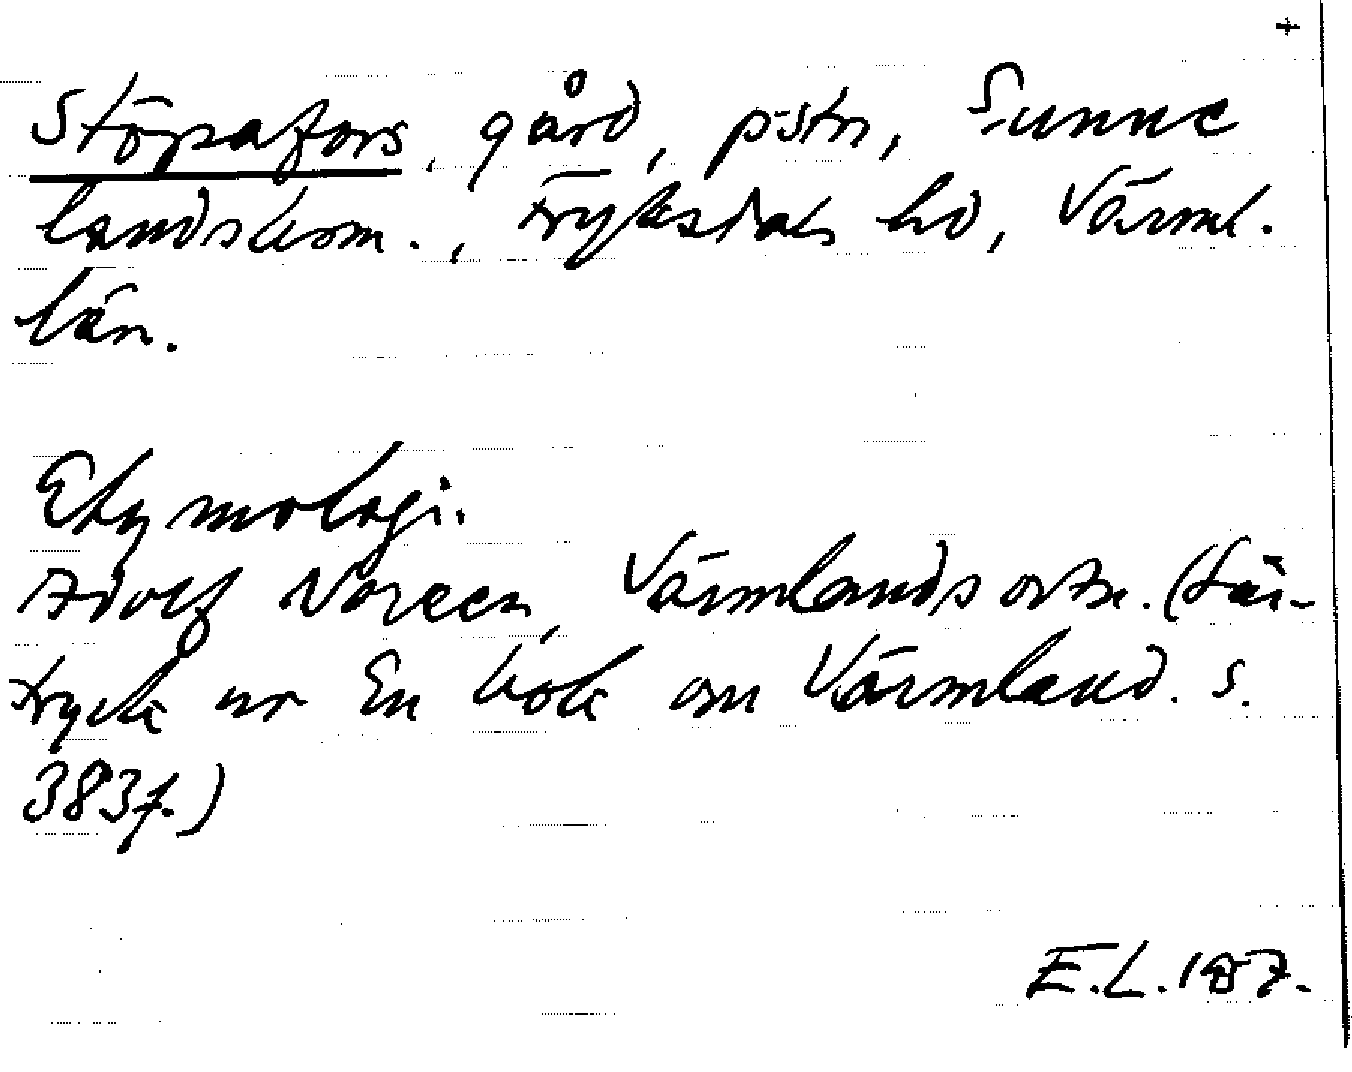 +
Stöpafors, gård, pstn, Sunne
landskom., Fryksdals hd, Värml.
län.
Etymologi.
Adolf Noreen, Värmlands ortn. (Sär-
tryck ur En bok om Värmland. S.
383 f.)
E.L. 187.